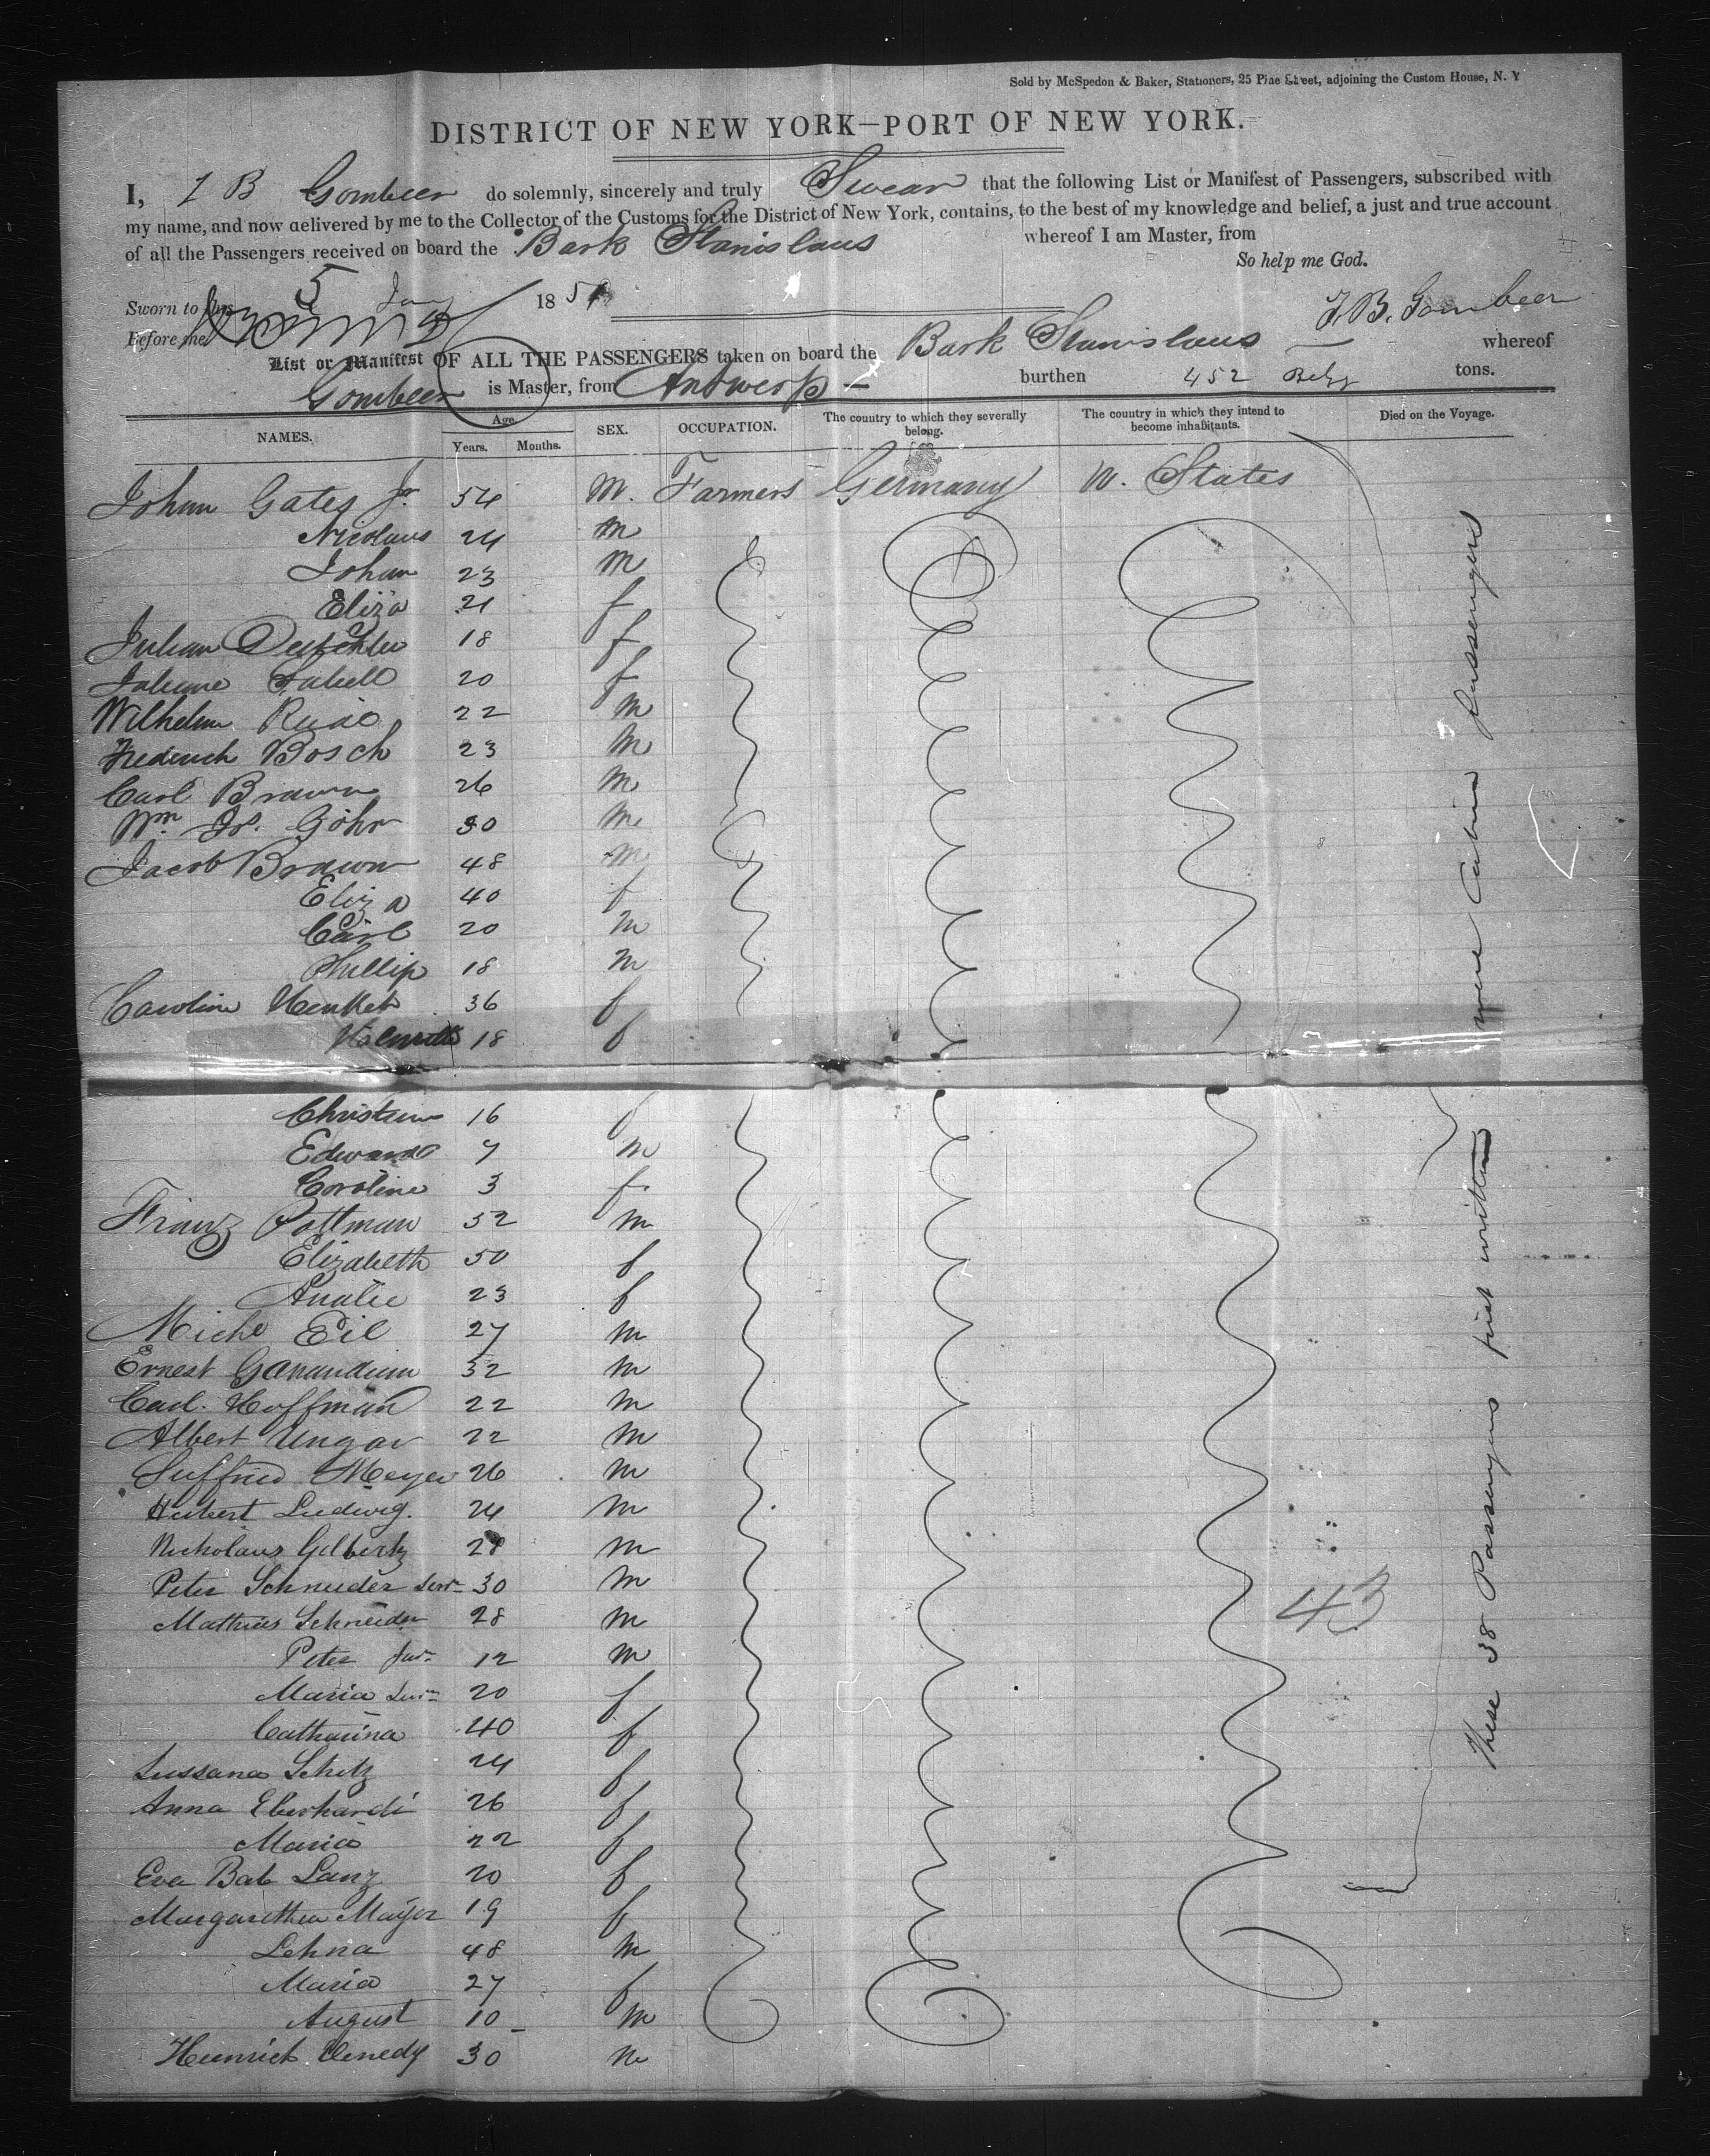 Sold by McSpedon & Baker, Stationers, 25 Pine Street, adjoining the Custom House, N. Y
DISTRICT OF NEW YORK—PORT OF NEW YORK.
I, J B Gombeer do solemnly, sincerely and truly Swear that the following List or Manifest of Passengers, subscribed with
my name, and now delivered by me to the Collector of the Customs for the District of New York, contains, to the best of my knowledge and belief, a just and true account
of all the Passengers received on board the Bark Stanislaus whereof I am Master, from
So help me God.
Sworn to this 5 Jany 185
J. B. Gombeer
Before me
List or Manifest OF ALL THE PASSENGERS taken on board the Bark Stanislaus whereof
Gombeer is Master, from Antwerp — burthen 452 tons.
NAMES. Age. Years. Months. SEX. OCCUPATION. The country to which they severally belong. The country in which they intend to become inhabitants. Died on the Voyage.
Johan Gates 54 M. Farmers Germany U. States
Nicolaus 24 m
Johan 23 m
Eliza 21 f
18 f
20 f
Wilhelm 22 m
Frederich Bosch 23 m
Carl Brawn 26 m
Wm Jos. Göhr 30 m
Jacob Brawn 48 m
Eliza 40 f
Carl 20 m
Phillip 18 m
Caroline 36 f
18 f
16 f
Edward 7 m
Caroline 3 f
Franz Pottman 52 m
Elizabeth 50 f
23 f
Eil 27 m
Ernest 32 m
Carl Hoffman 22 m
Albert Ungar 22 m
Meyer 26 m
Hubert Ludwig. 24 m
Nickolaus Gilbertz 28 m
Peter Schneider Senr 30 m
Mathias Schneider 28 m
Peter Junr 12 m
Maria 20 f
Catharina 40 f
Sussana Schitz 24 f
Anna Eberhardi 26 f
Maria 22 f
Eva Bab Lanz 20 f
Margarethea Mayer 19 f
Lehna 48 m
Maria 27 f
August 10 m
Heinrich 30 m
43
These 38 Passengers first written were Cabin Passengers